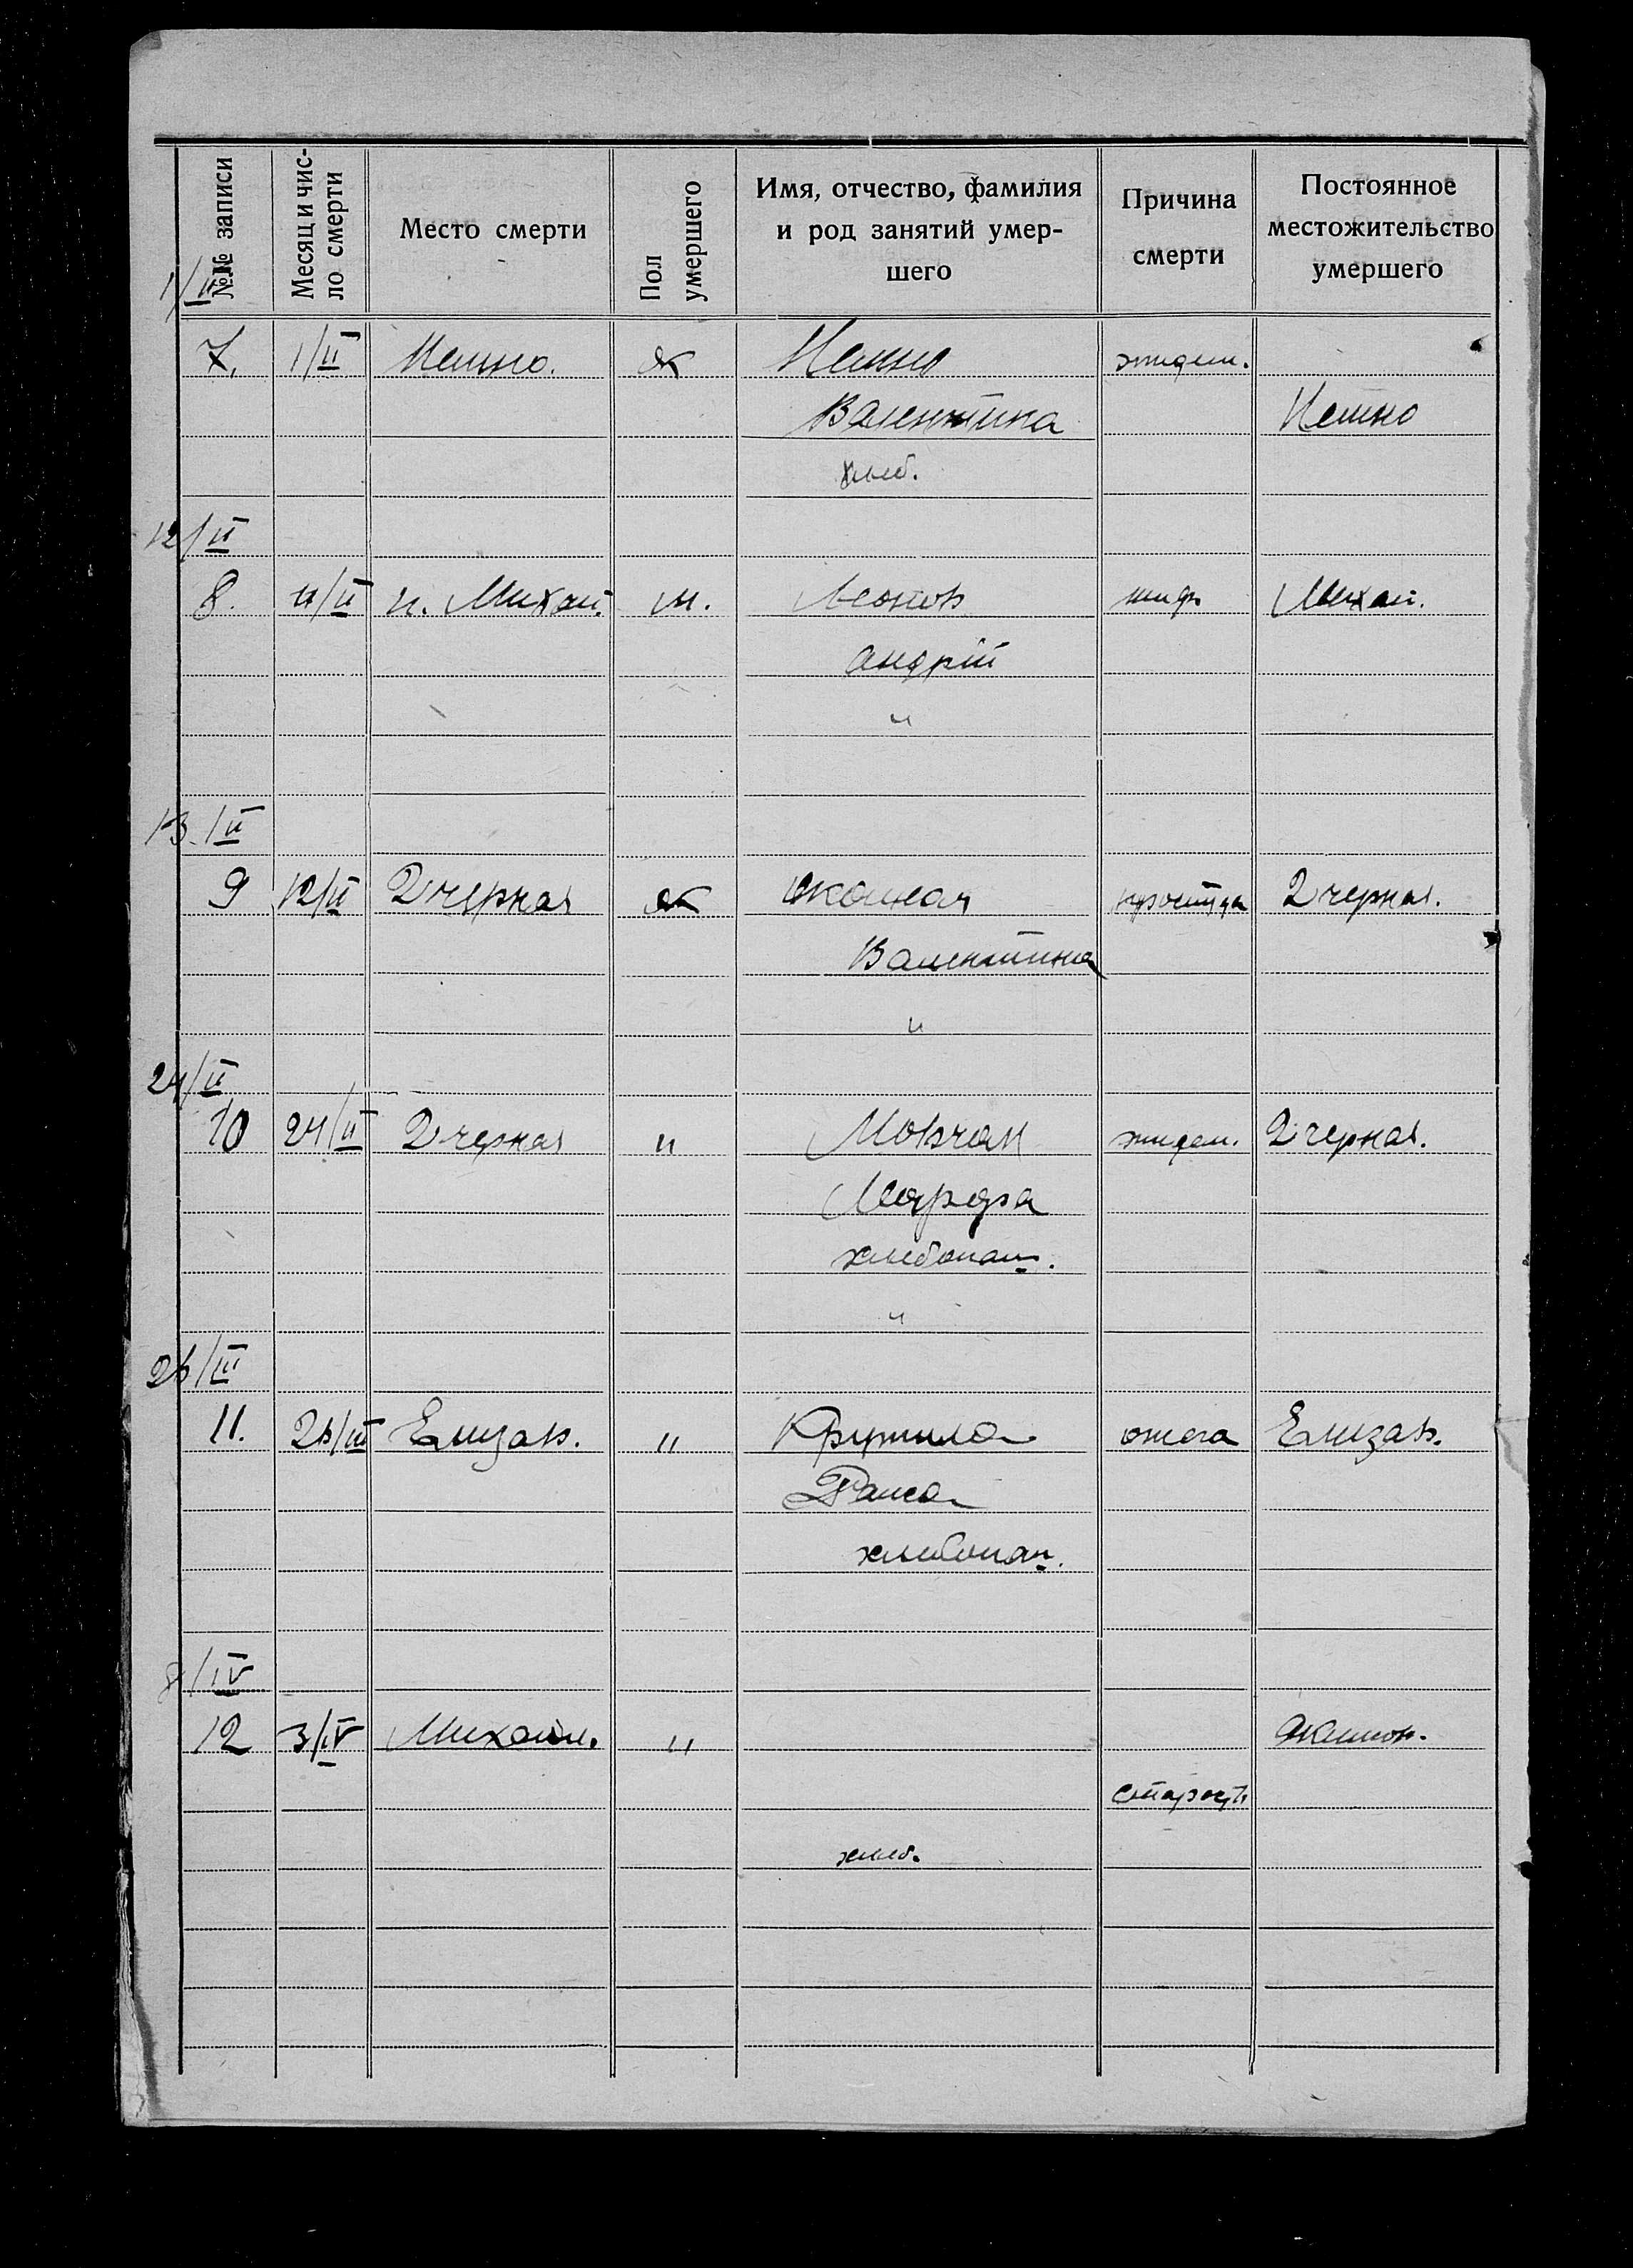 №№ записи
Месяц и чис-
ло смерти
Место смерти
Пол
умершего
Имя, отчество, фамилия
и род занятий умер-
шего
Причина
смерти
Постоянное
местожительство
умершего
1/II
7. 1/II ж
Валентина
хлеб.
12/II
8. 11/II п. Михай. м. Леонов Михай.
Андрій
"
13/II
9 12/II Дчерная ж простуда Дчерная.
Валентина
"
24/II
10 24/II Дчерная " Мовчан эпидем. Дчерная.
Марфа
хлебопаш.
"
26/III
11. 26/III Елизав. " ожога Елизав.
Раиса
хлебопаш.
8/IV
12 3/IV Михайл. "
старость
хлеб.